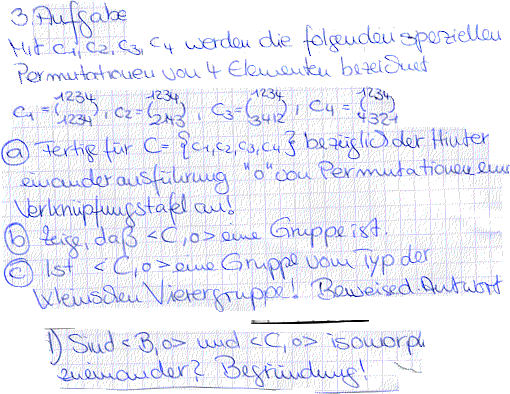 3. Aufgabe
Mit c1, c2, c3, c4 werden die folgenden speziellen
Permutationen von 4 Elementen bezeichnet
c1 = (1234 1234), c2 = (1234 2143), c3 = (1234 3412), c4 = (1234 4321)
a) Fertig für C = {c1, c2, c3, c4} bezüglich der Hinter
einanderausführung "o" von Permutationen eine
Verknüpfungstafel an!
b) Zeige, daß <C,o> eine Gruppe ist.
c) Ist <C,o> eine Gruppe vom Typ der
Kleinschen Vierergruppe! Beweise d. Antwort
1) Sind <B,o> und <C,o> isomorph
zueinander? Begründung!